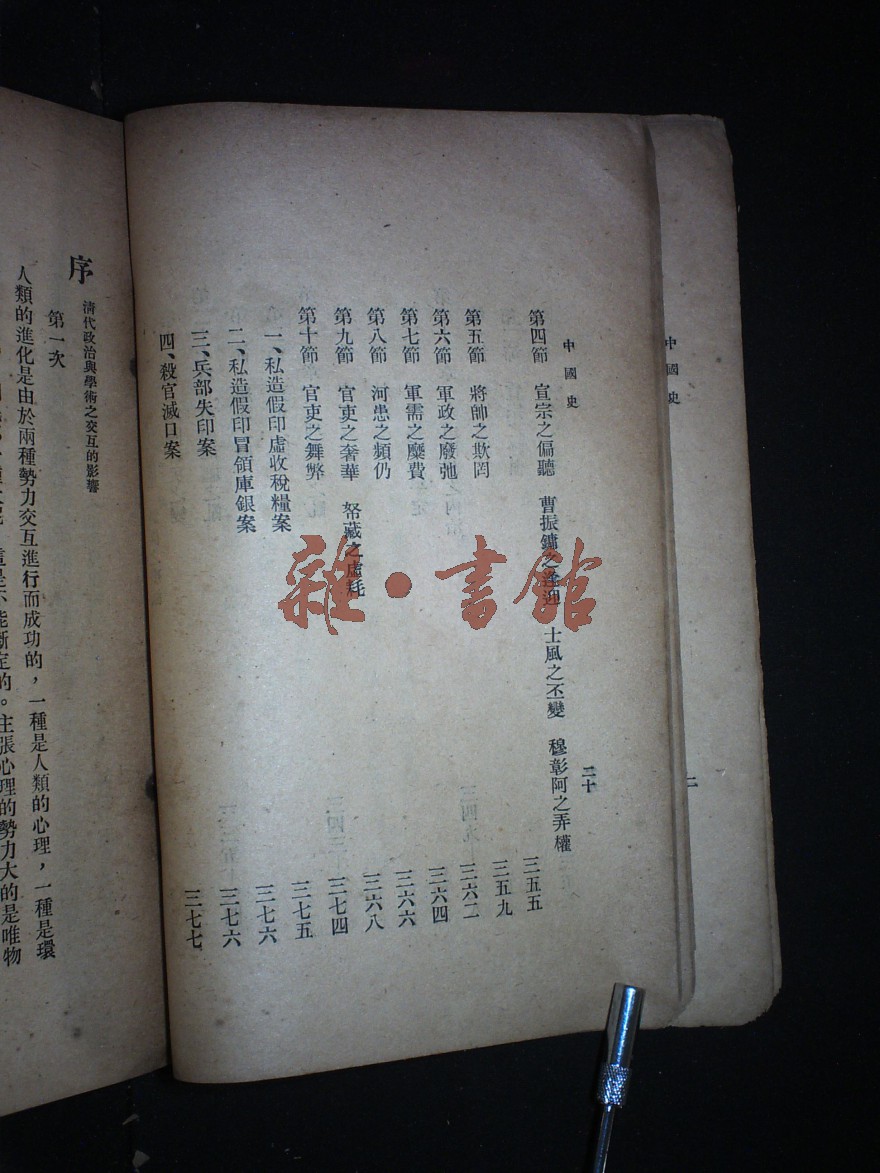 中國史
二十
第四節 宣宗之偏聽 曹振鏞之逢迎 士風之丕變 穆彰阿之弄權
三五五
三五九
第五節 將帥之欺罔 三六二
第六節 軍政之廢弛 三六四
第七節 軍需之糜費 三六六
第八節 河患之頻仍 三六八
第九節 官吏之奢華 帑藏之虛耗 三七四
第十節 官吏之舞弊 三七五
一、私造假印虛收稅糧案 三七六
二、私造假印冒領庫銀案 三七六
三、兵部失印案 三七七
四、殺官滅口案
序
清代政治與學術之交互的影響
第一次
人類的進化是由於兩種勢力交互進行而成功的，一種是人類的心理，一種是環
是不能斷定的。主張心理的勢力大的是唯物
中國史
雜·書館